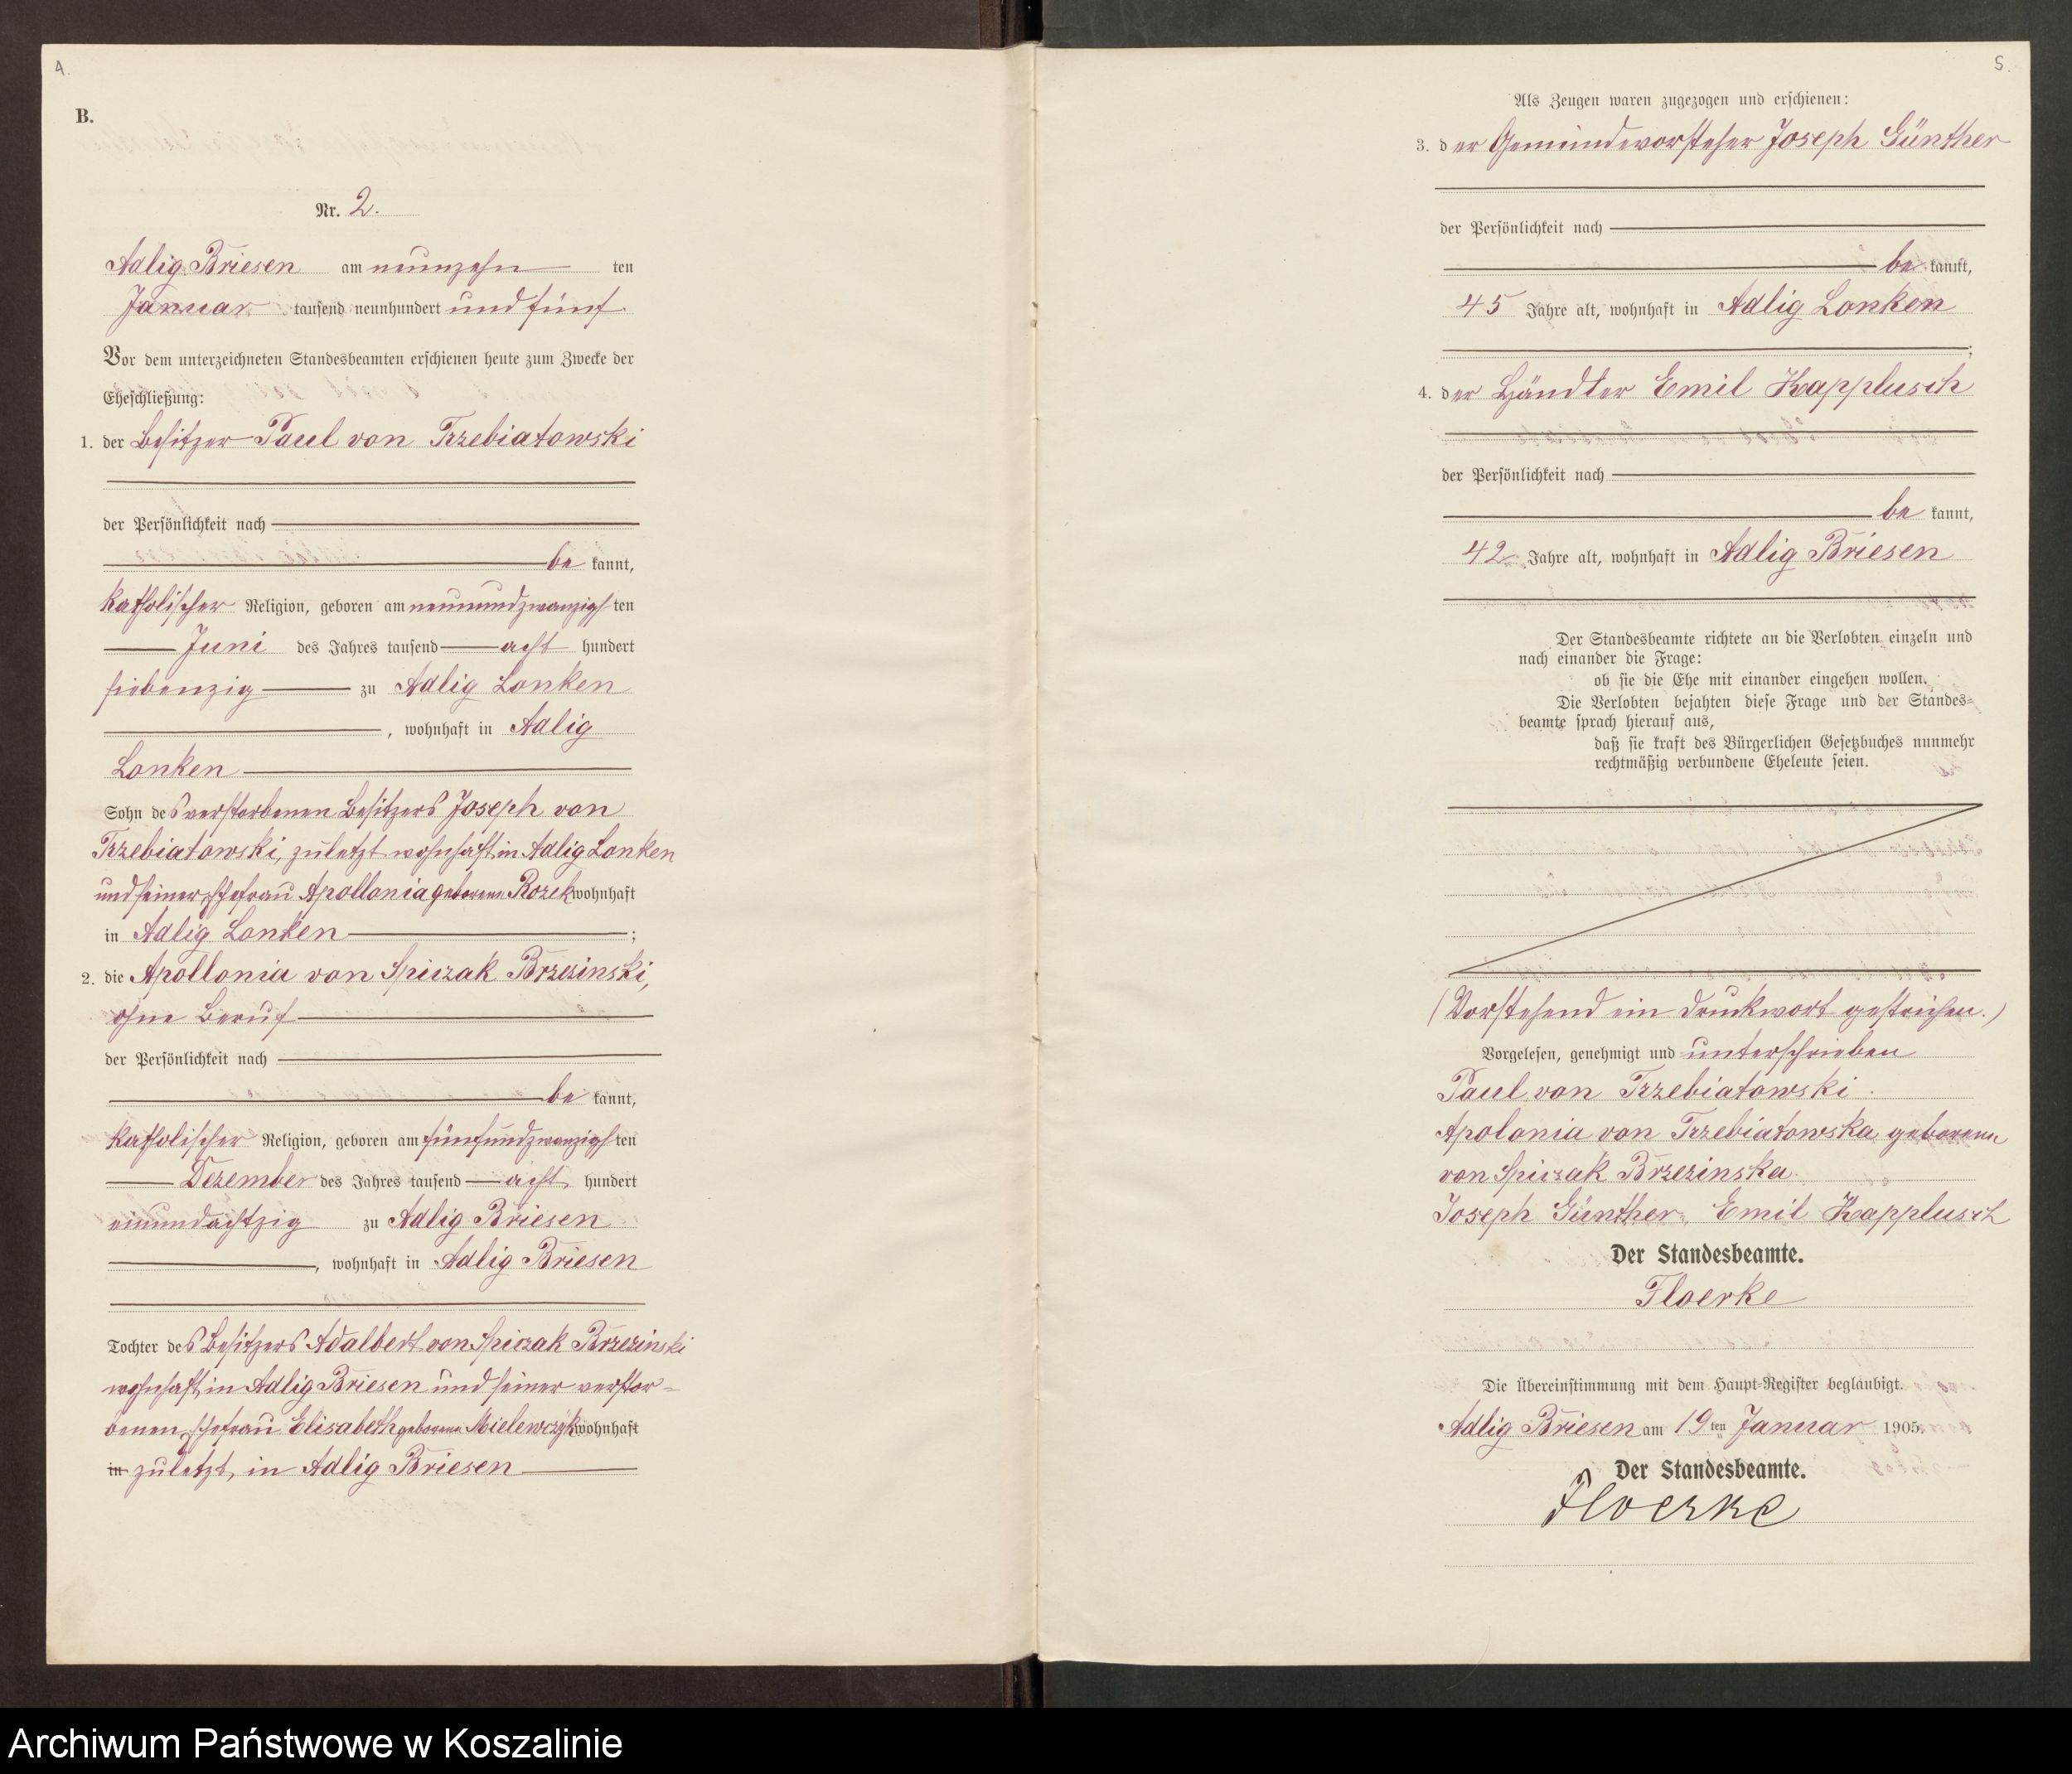 4.
B.
Nr. 2.
Adlig Briesen am neunzehn ten
Januar tausend neunhundert und fünf.
Vor dem unterzeichneten Standesbeamten erschienen heute zum Zwecke der
Eheschließung:
1. der Besitzer Paul von Trzebiatowski
der Persönlichkeit nach
be kannt,
katholischer Religion, geboren am neunundzwanzigsten
Juni des Jahres tausend acht hundert
siebenzig zu Adlig Lonken
, wohnhaft in Adlig
Lonken
Sohn des verstorbenen Besitzers Joseph von
Trzebiatowski, zuletzt wohnhaft in Adlig Lonken
und seiner Ehefrau Apollonia geborene Rozek wohnhaft
in Adlig Lonken ;
2. die Apollonia von Spiczak Brzezinski,
ohne Beruf
der Persönlichkeit nach
be kannt,
katholischer Religion, geboren am fünfundzwanzigsten
Dezember des Jahres tausend acht hundert
einundachtzig zu Adlig Briesen
, wohnhaft in Adlig Briesen
Tochter des Besitzers Adalbert von Spiczak Brzezinski
wohnhaft in Adlig Briesen und seiner verstor-
benen Ehefrau Elisabeth geborene Mielewczyk wohnhaft
in zuletzt in Adlig Briesen
5.
Als Zeugen waren zugezogen und erschienen:
3. der Gemeindevorsteher Joseph Günther
der Persönlichkeit nach
be kannt,
45 Jahre alt, wohnhaft in Adlig Lonken
;
4. der Händler Emil Kapplusch
der Persönlichkeit nach
be kannt,
42 Jahre alt, wohnhaft in Adlig Briesen
Der Standesbeamte richtete an die Verlobten einzeln und
nach einander die Frage:
ob sie die Ehe mit einander eingehen wollen.
Die Verlobten bejahten diese Frage und der Standes-
beamte sprach hierauf aus,
daß sie kraft des Bürgerlichen Gesetzbuches nunmehr
rechtmäßig verbundene Eheleute seien.
(Vorstehend ein Druckwort gestrichen.)
Vorgelesen, genehmigt und unterschrieben
Paul von Trzebiatowski.
Apolonia von Trzebiatowska geborene
von Spiczak Brzezinska.
Joseph Günther. Emil Kapplusch
Der Standesbeamte.
Floerke
Die Übereinstimmung mit dem Haupt-Register beglaubigt.
Adlig Briesen am 19ten Januar 1905.
Der Standesbeamte.
Floerke
Archiwum Państwowe w Koszalinie